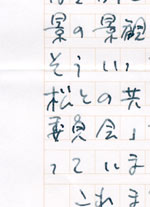 景の景観
そういい
松との共
委員会」
っていま
これま